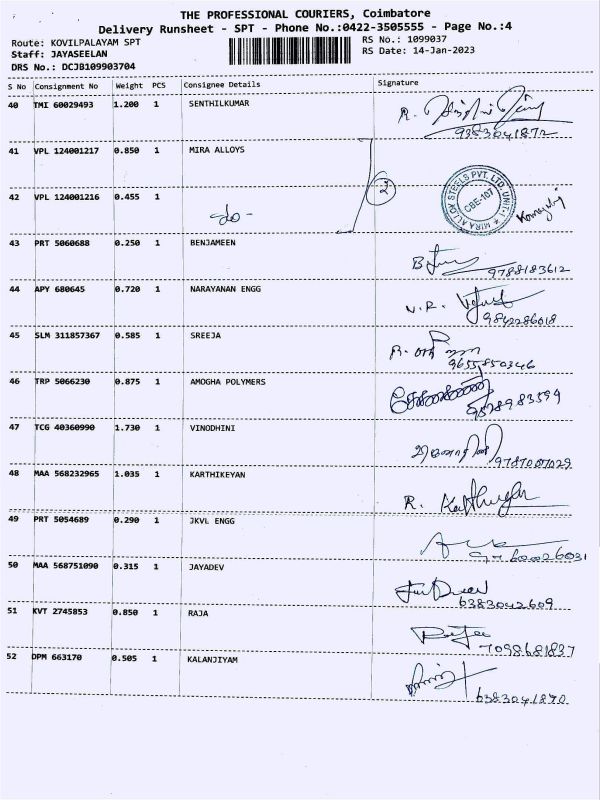 THE PROFESSIONAL COURIERS, Coimbatore
Delivery Runsheet - SPT - Phone No.:0422-3505555 - Page No.:4
Route: KOVILPALAYAM SPT
Staff: JAYASEELAN
DRS No.: DCJB109903704
RS No.: 1099037
RS Date: 14-Jan-2023
S No Consignment No Weight PCS Consignee Details Signature
40 TMI 60029493 1.200 1 SENTHILKUMAR
9383041872
41 VPL 124001217 0.850 1 MIRA ALLOYS
2
42 VPL 124001216 0.455 1
-do-
MIRA ALLOY STEELS PVT. LTD. UNIT-I
CBE-107
43 PRT 5060688 0.250 1 BENJAMEEN
9788183612
44 APY 680645 0.720 1 NARAYANAN ENGG
V.R.
9842286018
45 SLM 311857367 0.585 1 SREEJA
9655850346
46 TRP 5066230 0.875 1 AMOGHA POLYMERS
9578983599
47 TCG 40360990 1.730 1 VINODHINI
9787007029
48 MAA 568232965 1.035 1 KARTHIKEYAN
R. Karthikeyan
49 PRT 5054689 0.290 1 JKVL ENGG
50 MAA 568751090 0.315 1 JAYADEV
6383042609
51 KVT 2745853 0.850 1 RAJA
7098681837
52 DPM 663170 0.505 1 KALANJIYAM
6383041870